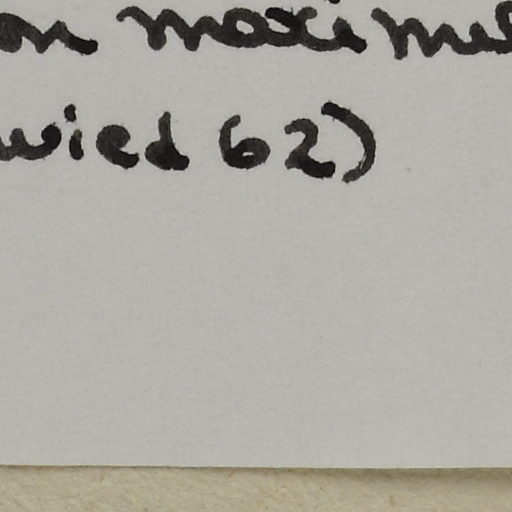 on maximu
wied 62)